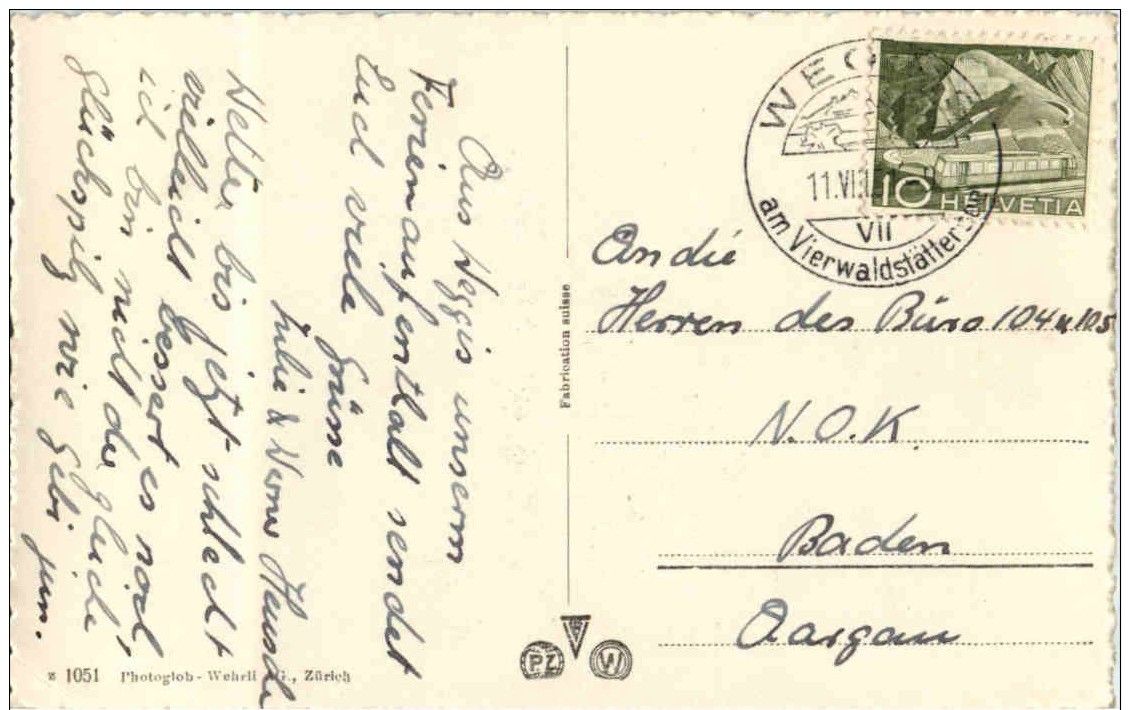 Aus Weggis unserm
Ferienaufenthalt sendet
Euch viele
Grüsse
Julie & Werner
Wetter bis jetzt schlecht
vielleicht bessert es noch
ich bin nicht der gleiche
Glückspilz wie Gebi jun.
WEGGIS
11.VII
VII
am Vierwaldstättersee
10 HELVETIA
An die
Herren des Büro 104 u 105
N.O.K.
Baden
Aargau
Fabrication suisse
1051 Photoglob-Wehrli AG., Zürich
PZ W